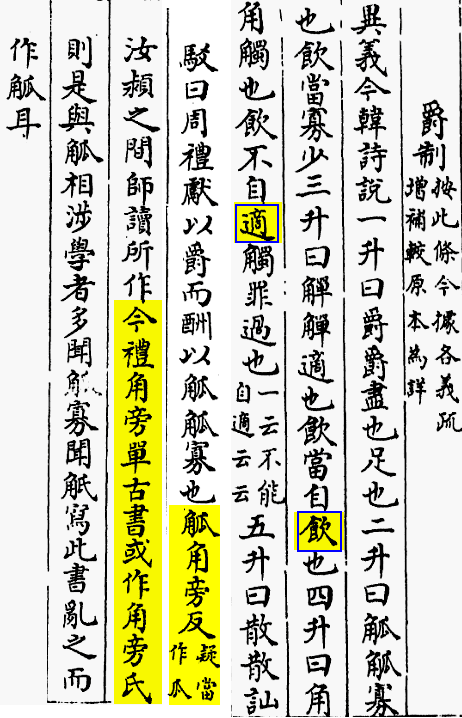 爵制按此條今據各義疏增補較原本為詳
異義今韓詩說一升曰爵爵盡也足也二升曰觚觚寡
也飲當寡少三升曰觶觶適也飲當自飲也四升曰角
角觸也飲不自適觸罪過也一云不能自適云云五升曰散散訕
駁曰周禮獻以爵而酬以觚觚寡也觚角旁反疑當作瓜
汝潁之間師讀所作今禮角旁單古書或作角旁氏
則是與觚相涉學者多聞觚寡聞觗寫此書亂之而
作觚耳